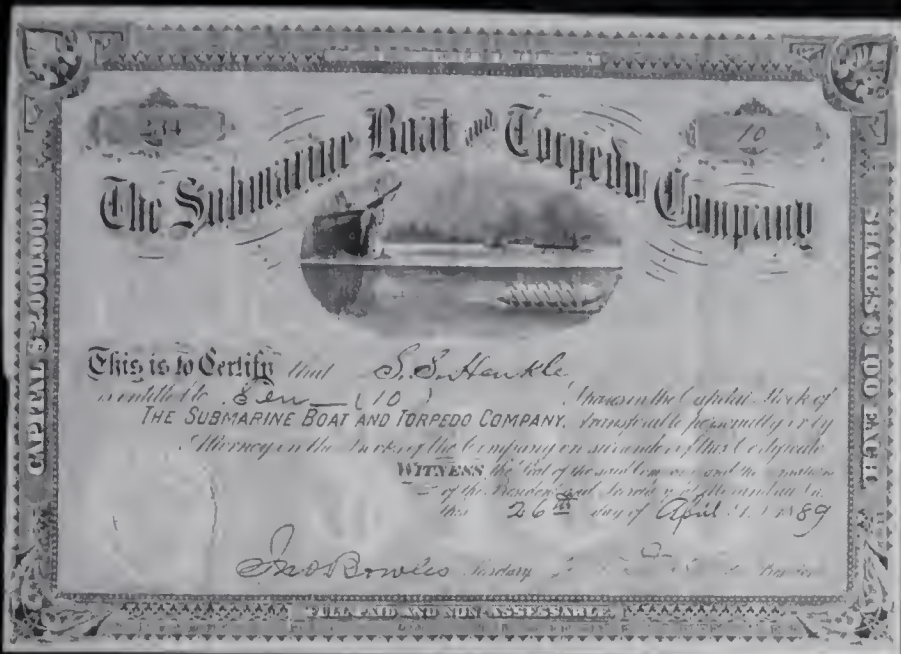 234
10
The Submarine Boat and Torpedo Company
CAPITAL $2,000,000.
SHARES $100 EACH.
This is to Certify that S. S. Henkle
is entitled to Ten (10) Shares in the Capital Stock of
THE SUBMARINE BOAT AND TORPEDO COMPANY, transferable personally or by
Attorney in the books of the Company on surrender of this Certificate
WITNESS the Seal of the said Company and the signatures
of the President and Secretary at Alexandria Va.
this 26th day of April A.D. 1889
Jno Bowles Secretary President
FULL PAID AND NON-ASSESSABLE.